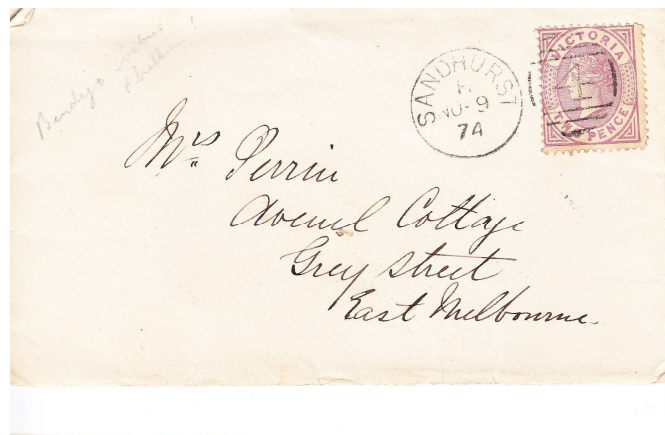 Bendigo
SANDHURST
H
NO-9
74
VICTORIA
TWO PENCE
Mrs Perrin
Avenel Cottage
Grey Street
East Melbourne